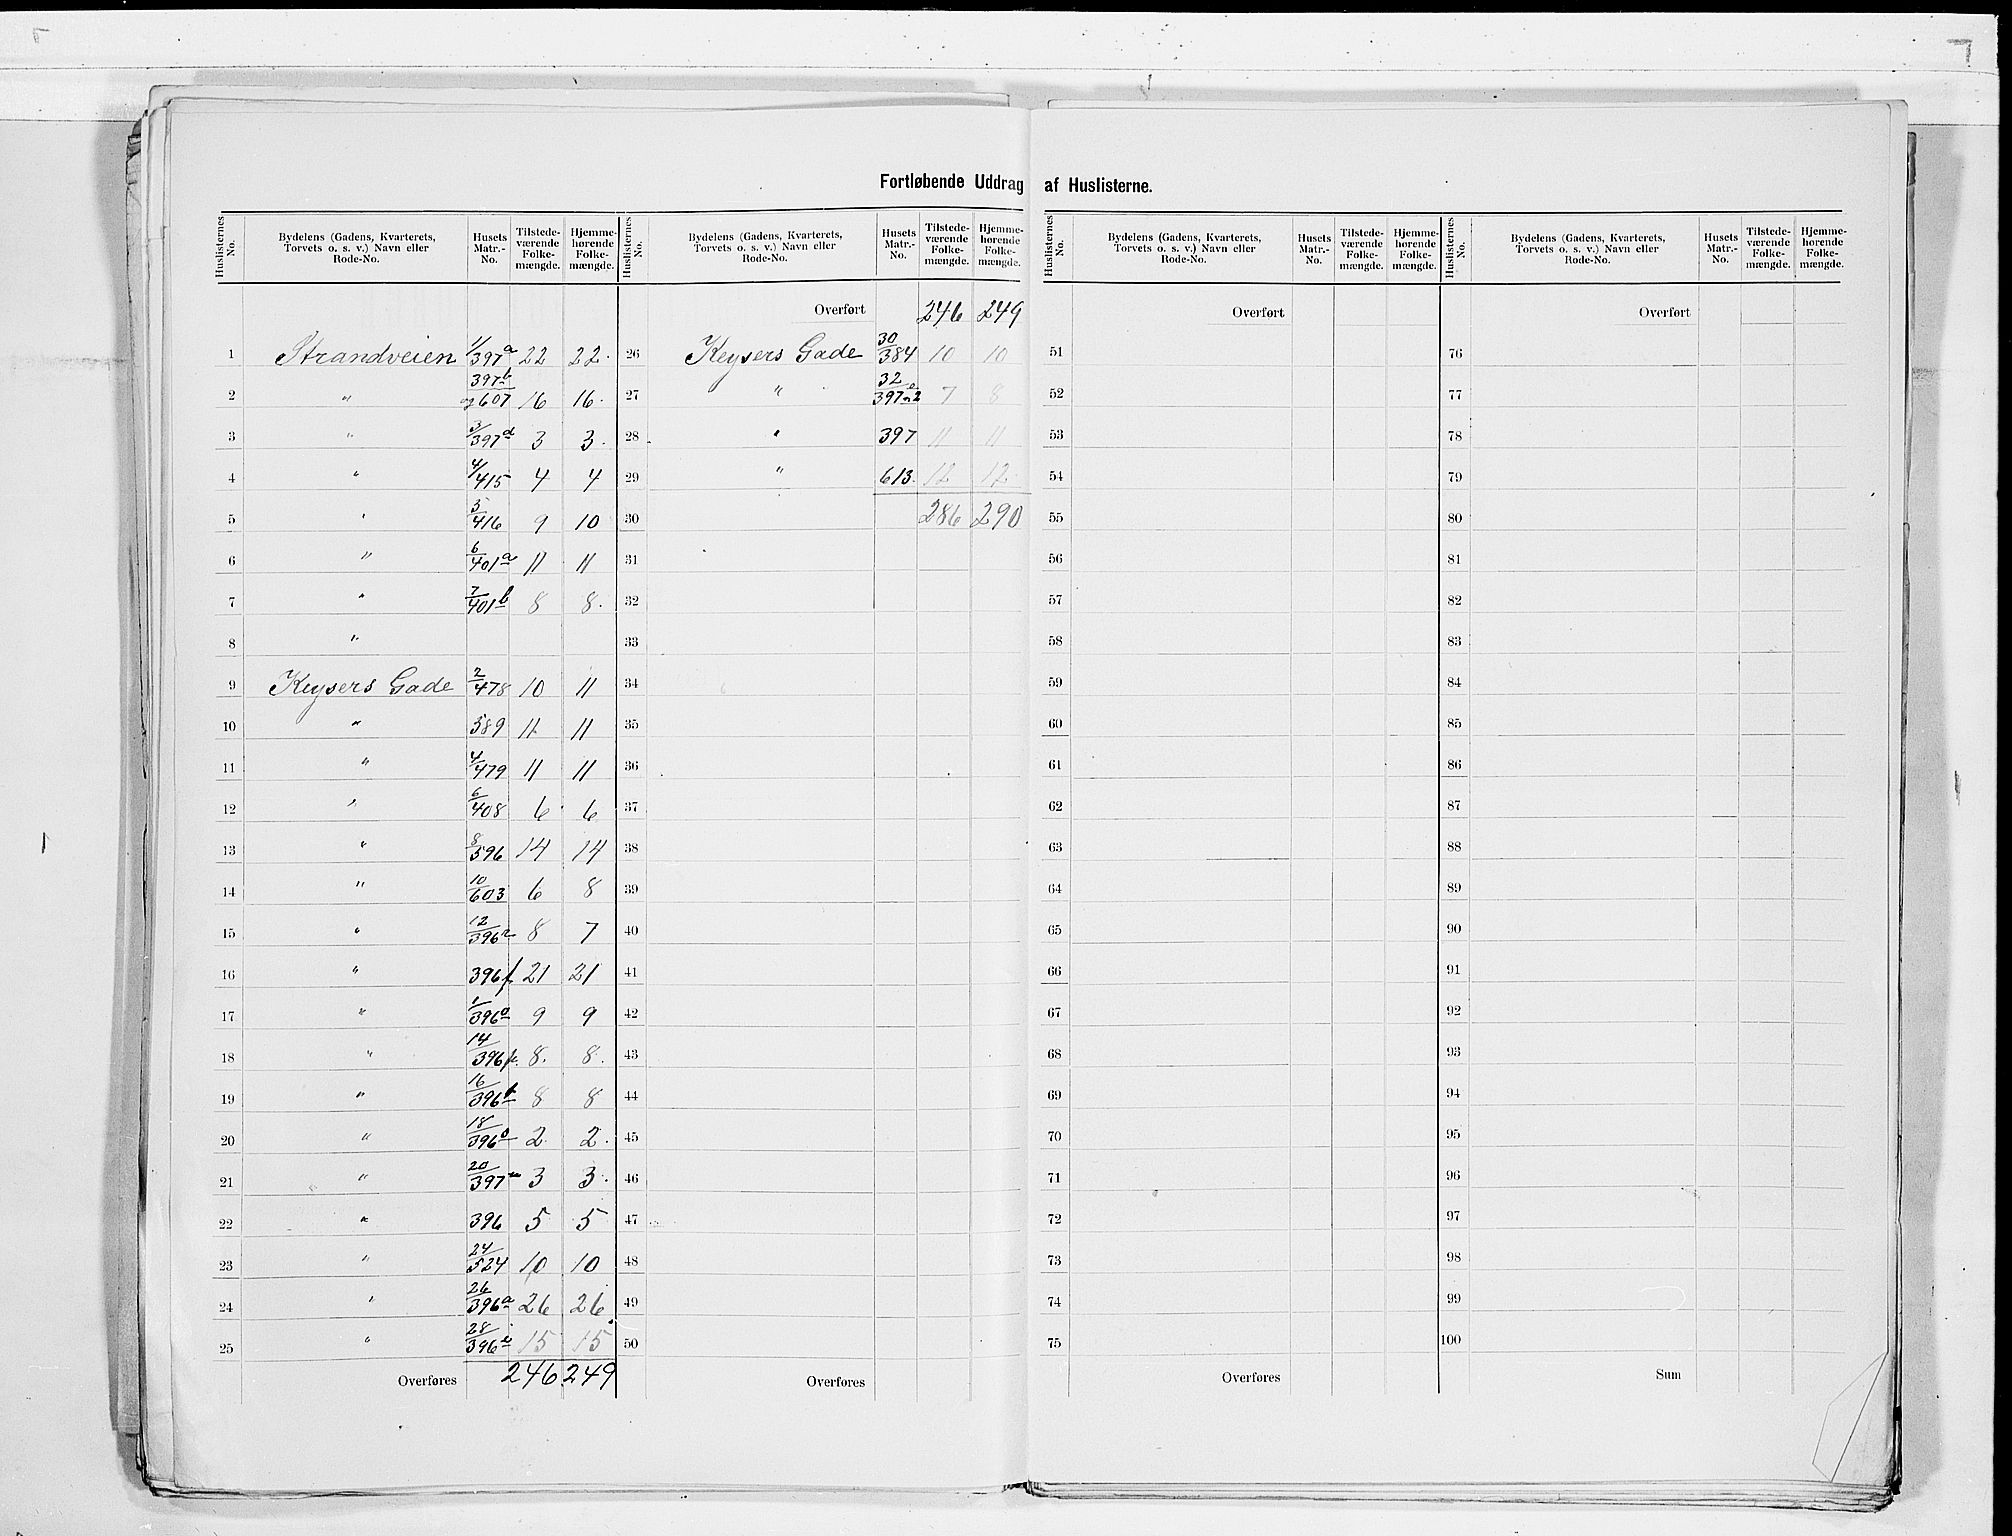 Fortløbende Uddrag af Huslisterne.
Huslisternes No. | Bydelens (Gadens, Kvarterets, Torvets o. s. v.) Navn eller Rode-No. | Husets Matr.-No. | Tilstedeværende Folkemængde. | Hjemmehørende Folkemængde.
1 Strandveien 1/397a 22 22.
2 " 397b og 607 16 16.
3 " 3/397d 3 3.
4 " 4/415 4 4
5 " 5/416 9 10
6 " 6/401a 11 11
7 " 7/401b 8 8.
8 "
9 Keysers Gade 2/478 10 11
10 " 589 11 11
11 " 4/479 11 11
12 " 6/408 6 6
13 " 8/596 14 14
14 " 10/603 6 8
15 " 12/396 8 7
16 " 396f 21 21
17 " 1/396 9 9
18 " 14/396 8. 8.
19 " 16/396 8 8
20 " 18/396 2 2.
21 " 20/397 3 3.
22 " 396 5 5
23 " 24/524 10 10
24 " 26/396a 26 26
25 " 28/396 15 15
Overføres 246 249
Huslisternes No. | Bydelens (Gadens, Kvarterets, Torvets o. s. v.) Navn eller Rode-No. | Husets Matr.-No. | Tilstedeværende Folkemængde. | Hjemmehørende Folkemængde.
Overført 246 249
26 Keysers Gade 30/384 10 10
27 " 32/397 7 8
28 " 397 11 11
29 " 613. 12 12.
30 286 290
31
32
33
34
35
36
37
38
39
40
41
42
43
44
45
46
47
48
49
50
Overføres
Huslisternes No. | Bydelens (Gadens, Kvarterets, Torvets o. s. v.) Navn eller Rode-No. | Husets Matr.-No. | Tilstedeværende Folkemængde. | Hjemmehørende Folkemængde.
Overført
51
52
53
54
55
56
57
58
59
60
61
62
63
64
65
66
67
68
69
70
71
72
73
74
75
Overføres
Huslisternes No. | Bydelens (Gadens, Kvarterets, Torvets o. s. v.) Navn eller Rode-No. | Husets Matr.-No. | Tilstedeværende Folkemængde. | Hjemmehørende Folkemængde.
Overført
76
77
78
79
80
81
82
83
84
85
86
87
88
89
90
91
92
93
94
95
96
97
98
99
100
Sum